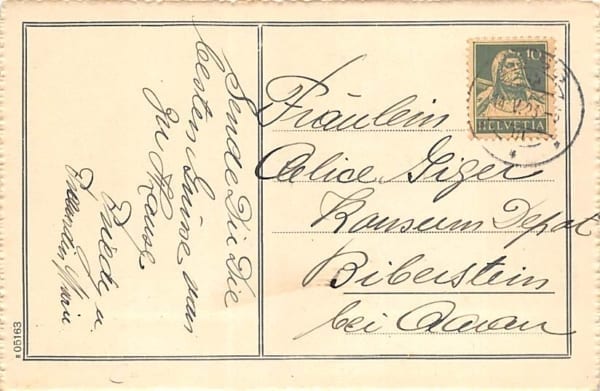 Sende Dir Die
besten Grüsse von
zu Hause
Fräulein
Alice Gyger
Konsum Depot
Biberstein
bei Aarau
10
HELVETIA
05163